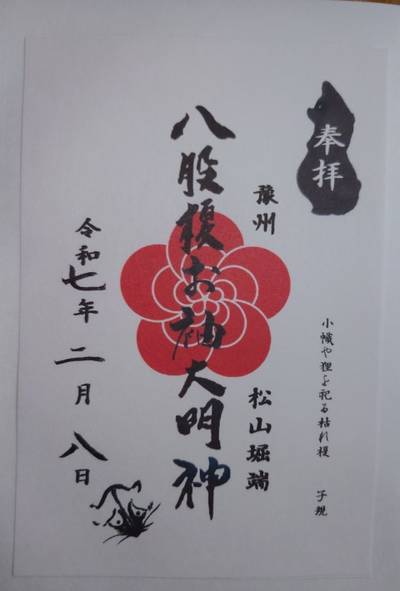 奉拝
小幟や狸を祀る枯れ榎 子規
豫州
松山堀端
八股榎お袖大明神
令和七年二月八日